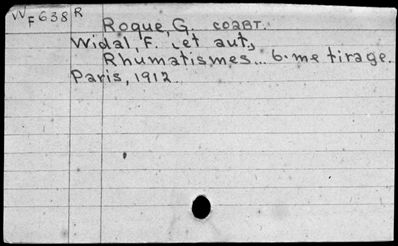 WF638 R
Roque, G. coabt.
Widal, F. et aut.,
Rhumatismes... 6.me tirage.
Paris, 1912